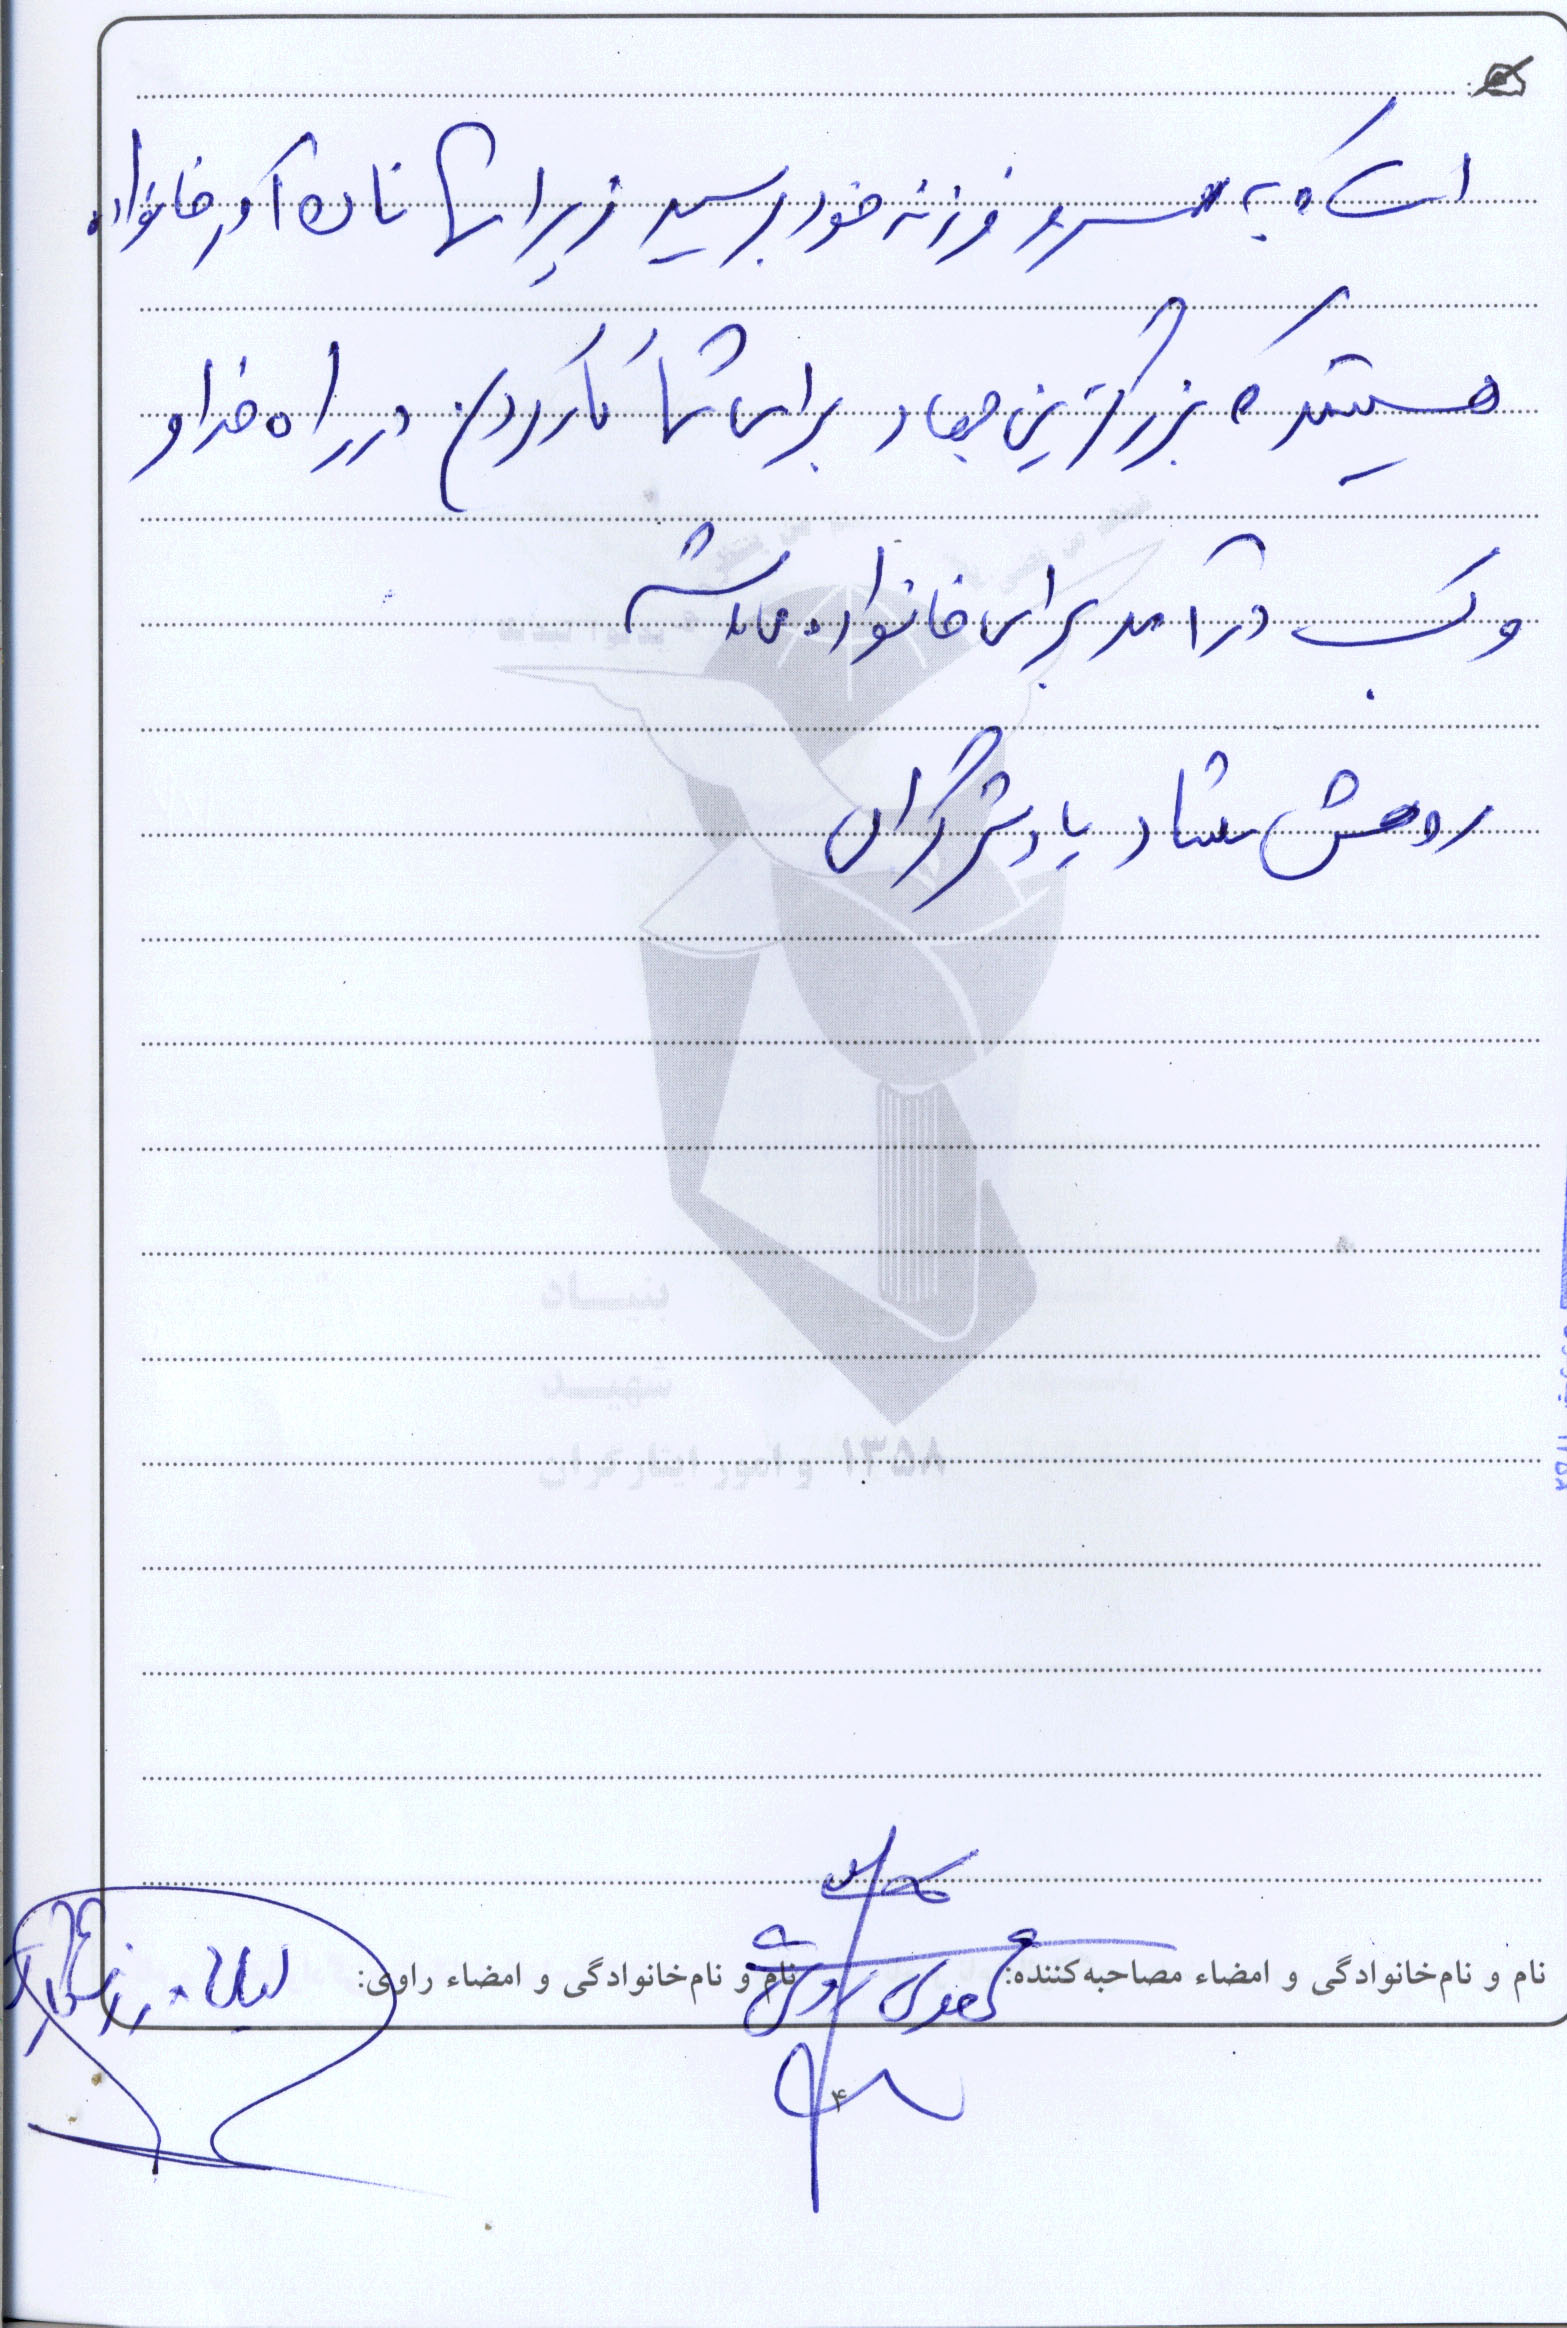 است که به همسر و فرزند خود برسید زیرا شما نان آور خانواده
هستید که بزرگترین جهاد برای شما کار کردن در راه خدا و
و کسب درآمد برای خانواده می باشد
روحش شاد یادش گرامی
بنیاد
شهید
و امور ایثارگران ۱۳۵۸
نام و نام‌خانوادگی و امضاء مصاحبه‌کننده:
نام و نام‌خانوادگی و امضاء راوی:
۴